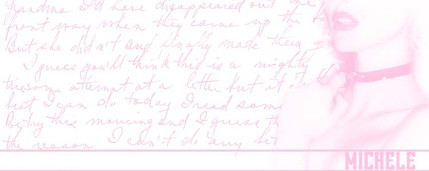 Grandma I'd have disappeared out the
front way when they came up the
But she didn't and finally made their
I guess you'll think this is a mighty
attempt at a letter but it
best I can do today I read som
this morning and I guess th
the reason I can't do any be
MICHELE